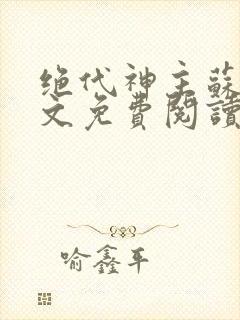 绝代神主蘇
文免費閱讀
喻鑫平